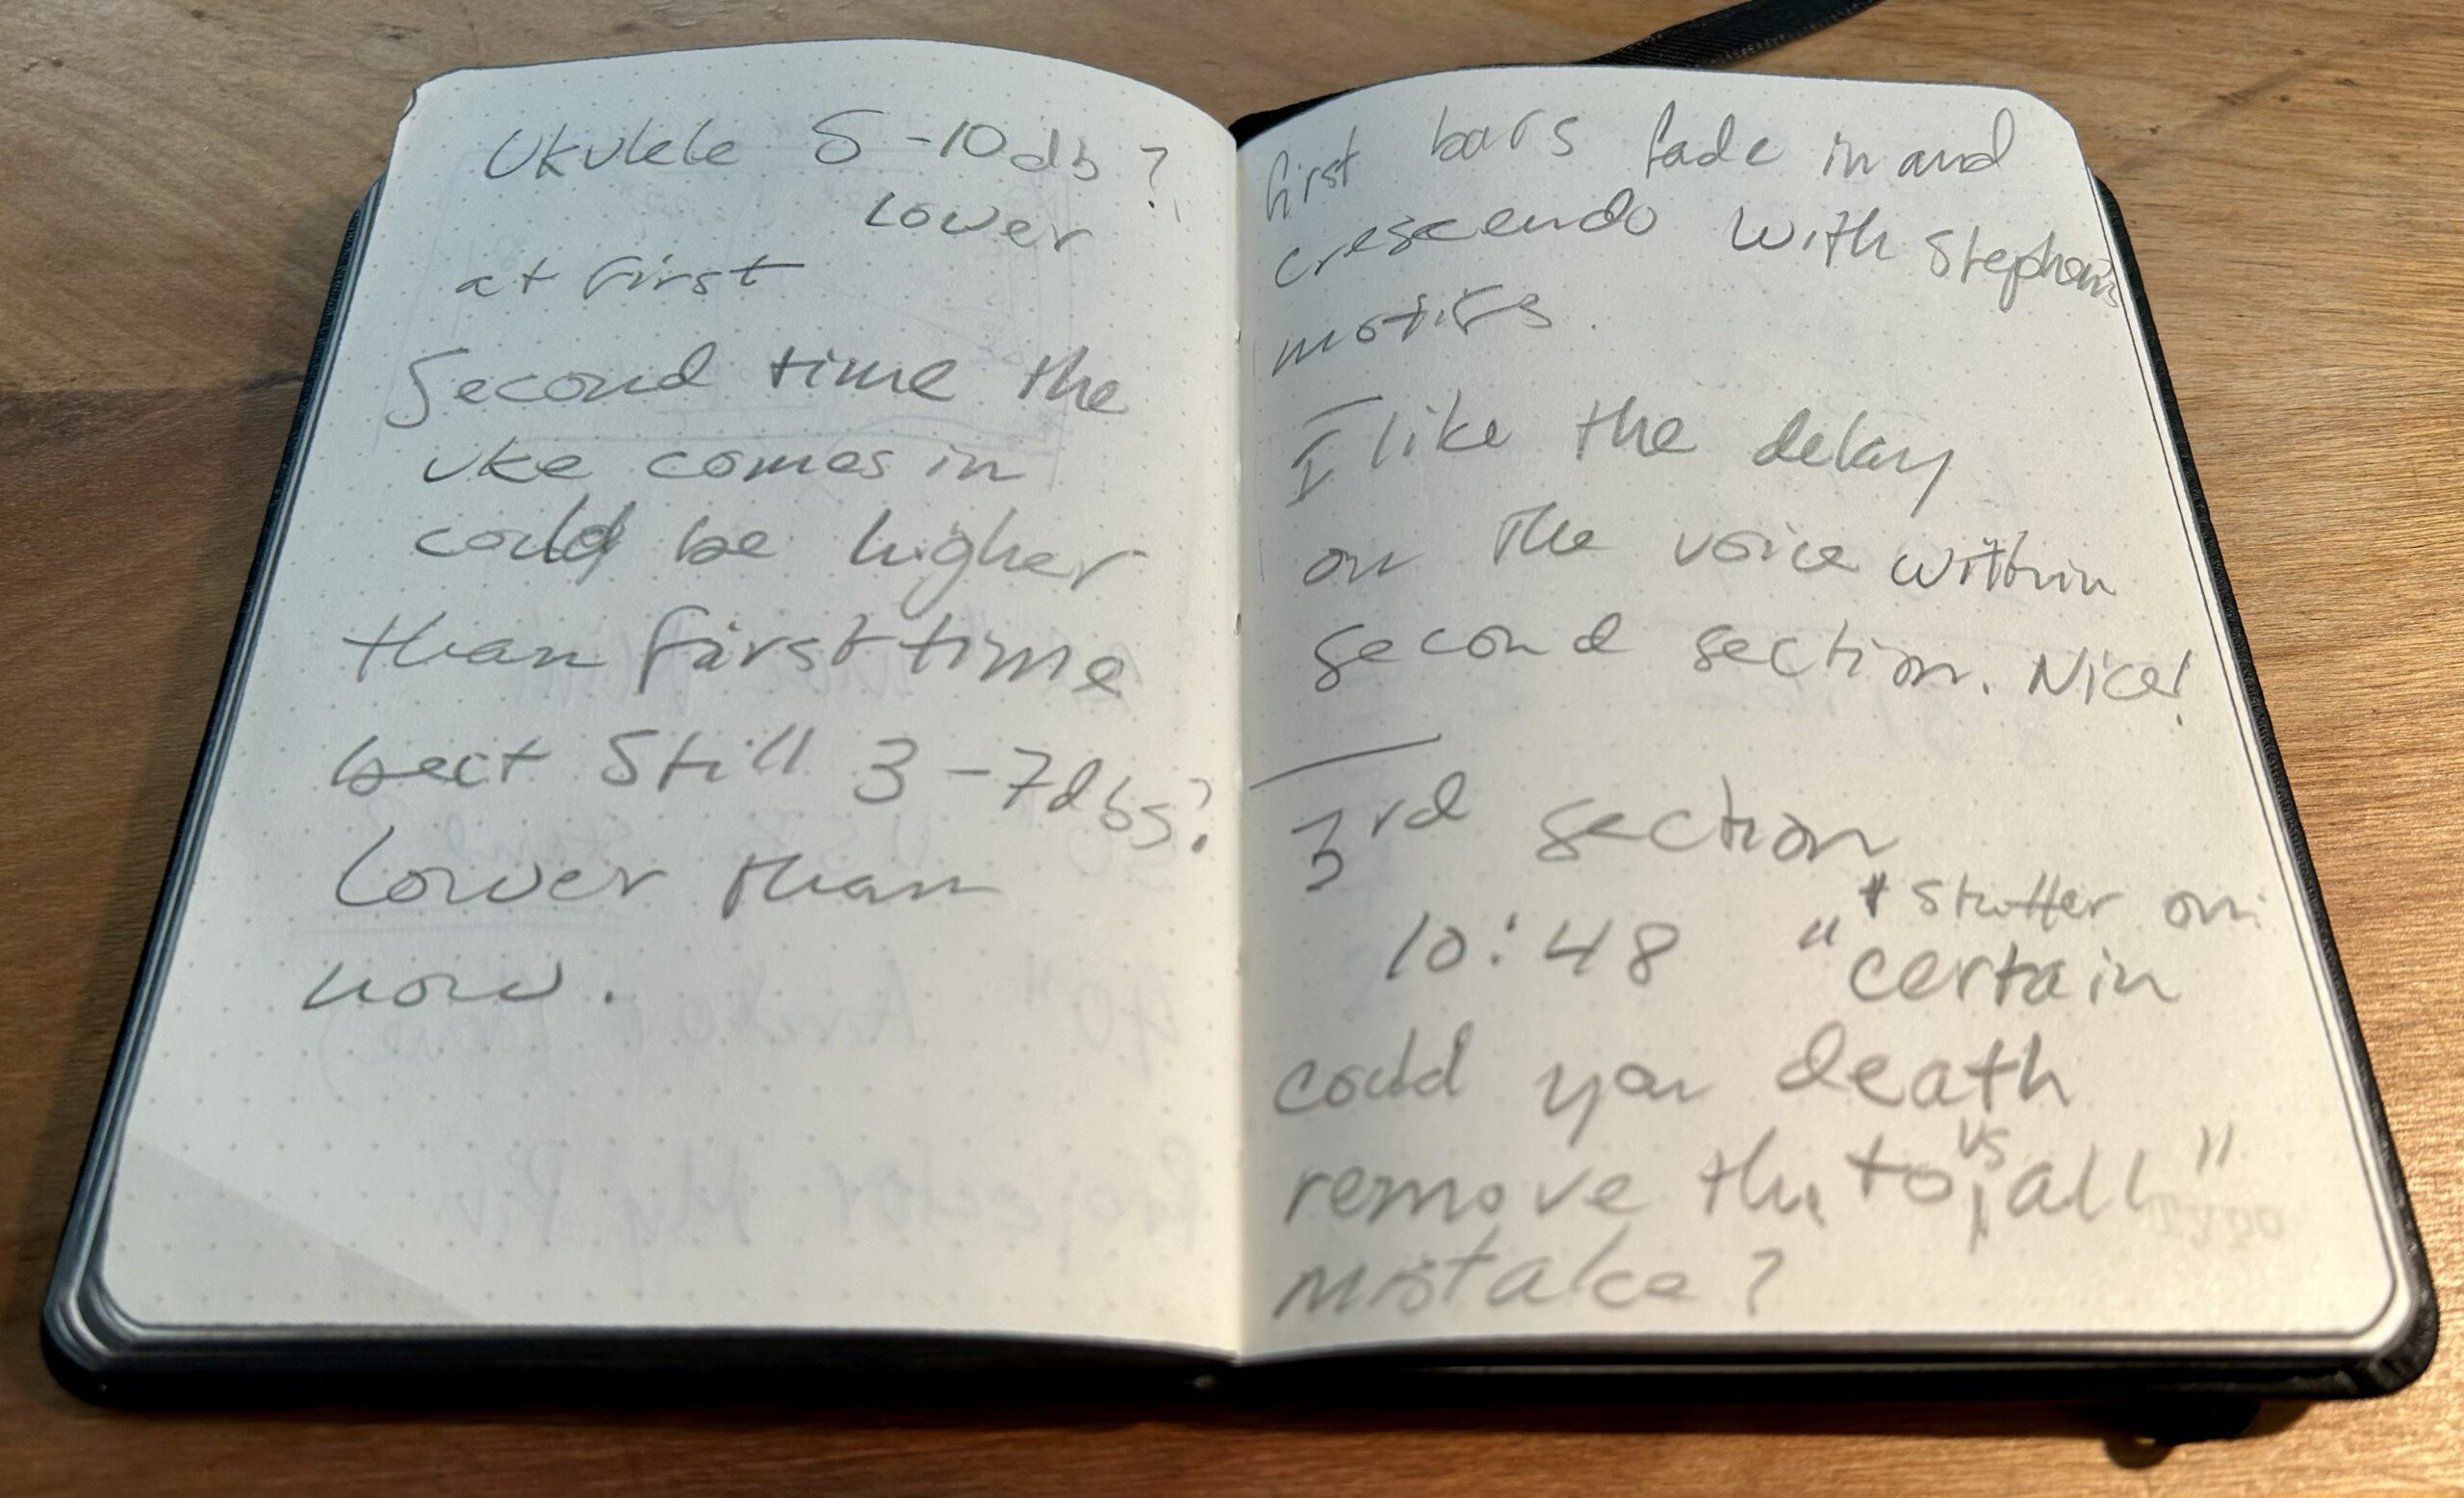 Ukulele 5-10db?
lower
at first
Second time the
uke comes in
could be higher
than first time
but still 3-7dbs?
lower than
now.
first bars fade in and
crescendo with Stephen's
motifs.
I like the delay
on the voice within
second section. Nice!
3rd section
* stutter on
10:48 "certain
could you death
remove the to vs all"
mistake?